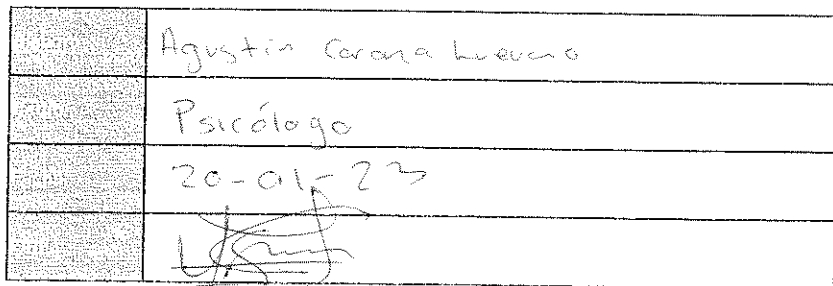 Agustin Corona Luevano
Psicólogo
20-01-23